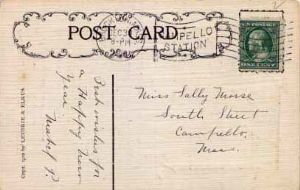 POST CARD
CAMPELLO
STATION
ONE CENT
Best wishes for
a Happy New
Year
Mabel P.
Miss Sally Morse
South Street
Campello,
Mass.